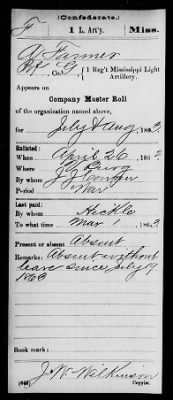 (Confederate.)
F 1 L. Art'y. Miss.
A Farmer
Pvt, Co. G, 1 Reg't Mississippi Light Artillery.
Appears on
Company Muster Roll
of the organization named above,
for July & Aug, 1863.
Enlisted:
When April 26, 186
Where
By whom
Period War
Last paid:
By whom Hickle
To what time Mar 1, 1863.
Present or absent Absent
Remarks: Absent without
leave since July 19
1863
Book mark:
J. W. Wilkinson
(642) Copyist.